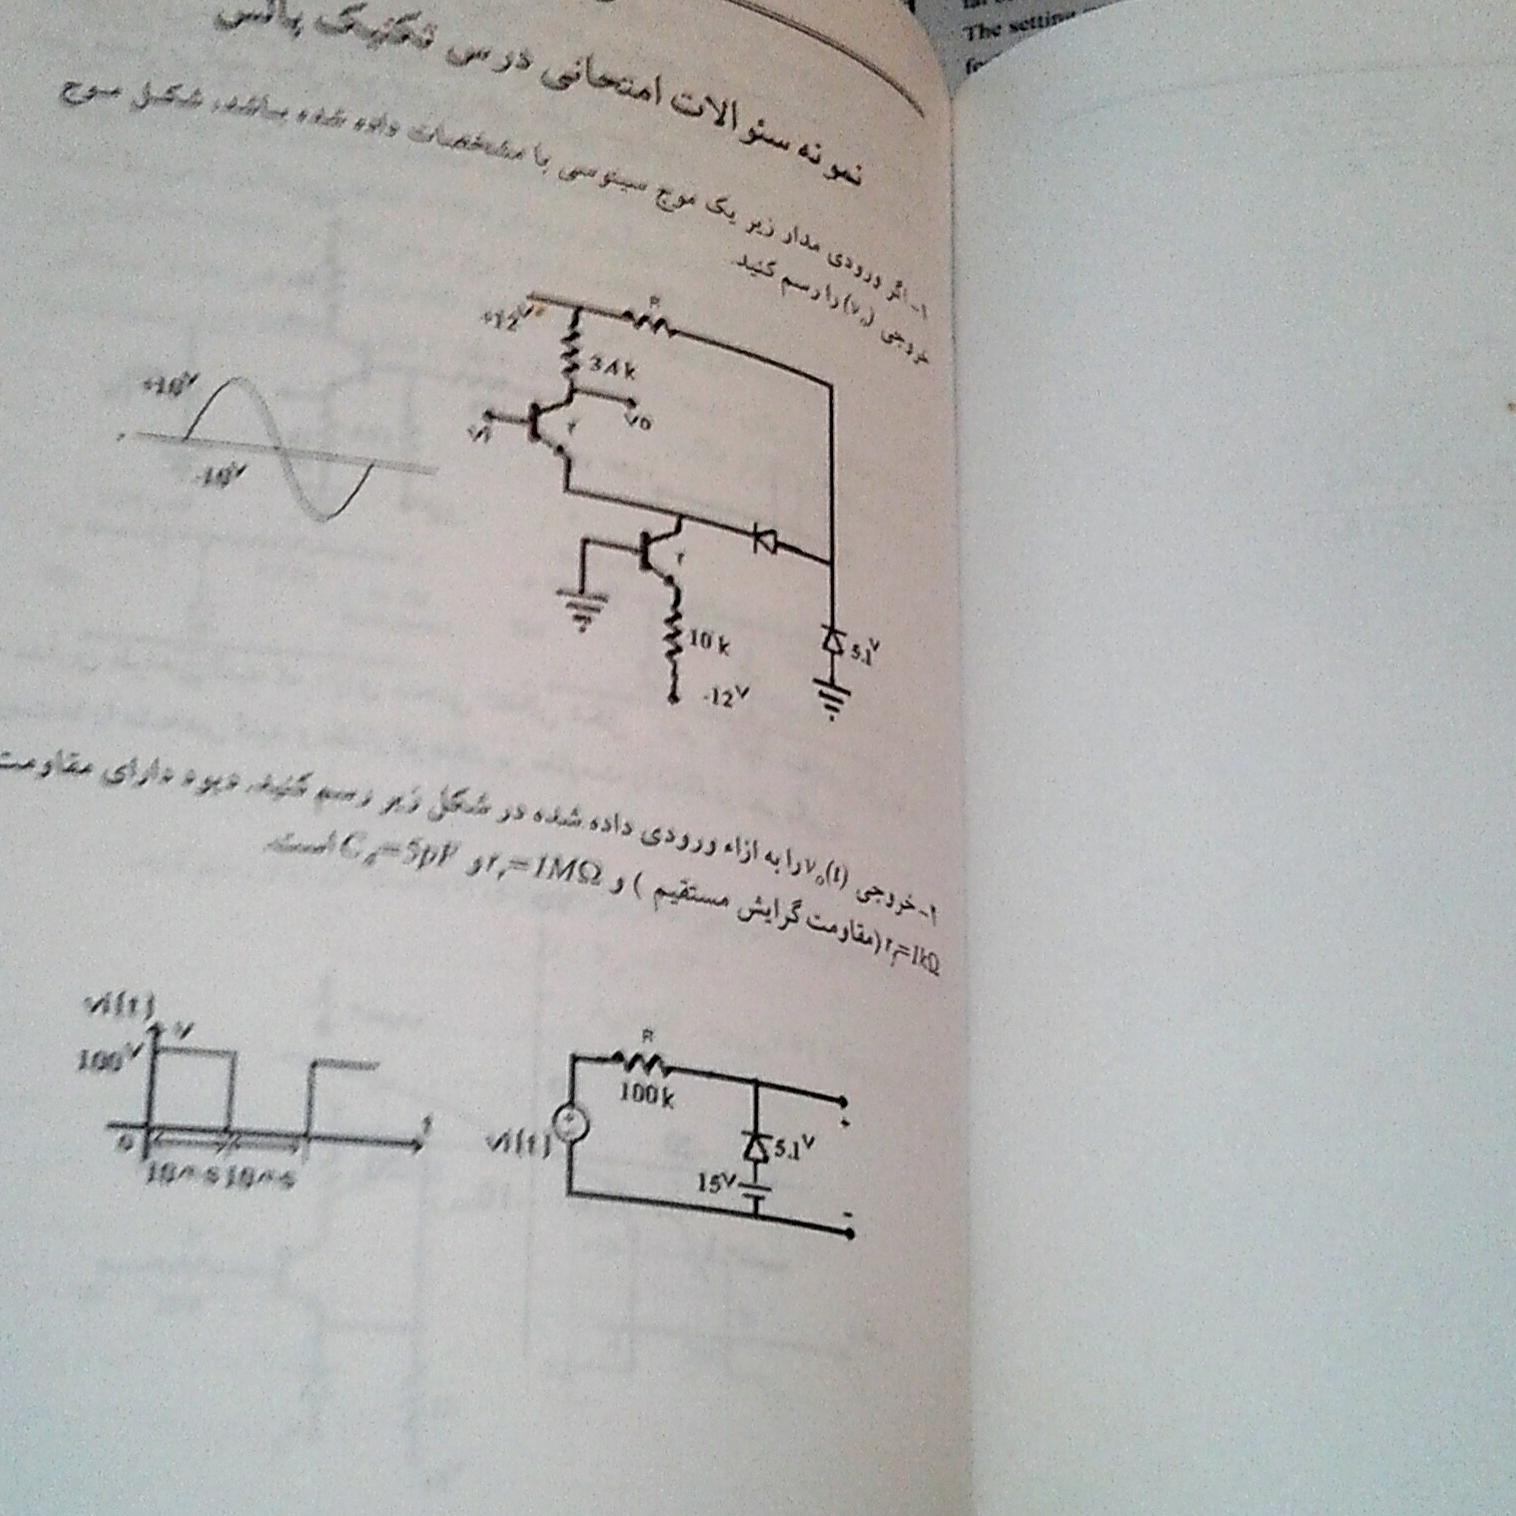 The setting
نمونه سئوالات امتحانی درس تکنیک پالس
۱- اگر ورودی مدار زیر یک موج سینوسی با مشخصات داده شده باشد، شکل موج
خروجی (v₀) را رسم کنید.
+12V
R
3.4k
+10V
-10V
Vi
Vo
10k
-12V
5.1V
۲- خروجی v₀(t) را به ازاء ورودی داده شده در شکل زیر رسم کنید. دیود دارای مقاومت
r_f=1kΩ (مقاومت گرایش مستقیم) و r_r=1MΩ و C_d=5pF است.
vi(t)
V
100V
0
t
R
100k
vi(t)
5.1V
15V
+
-